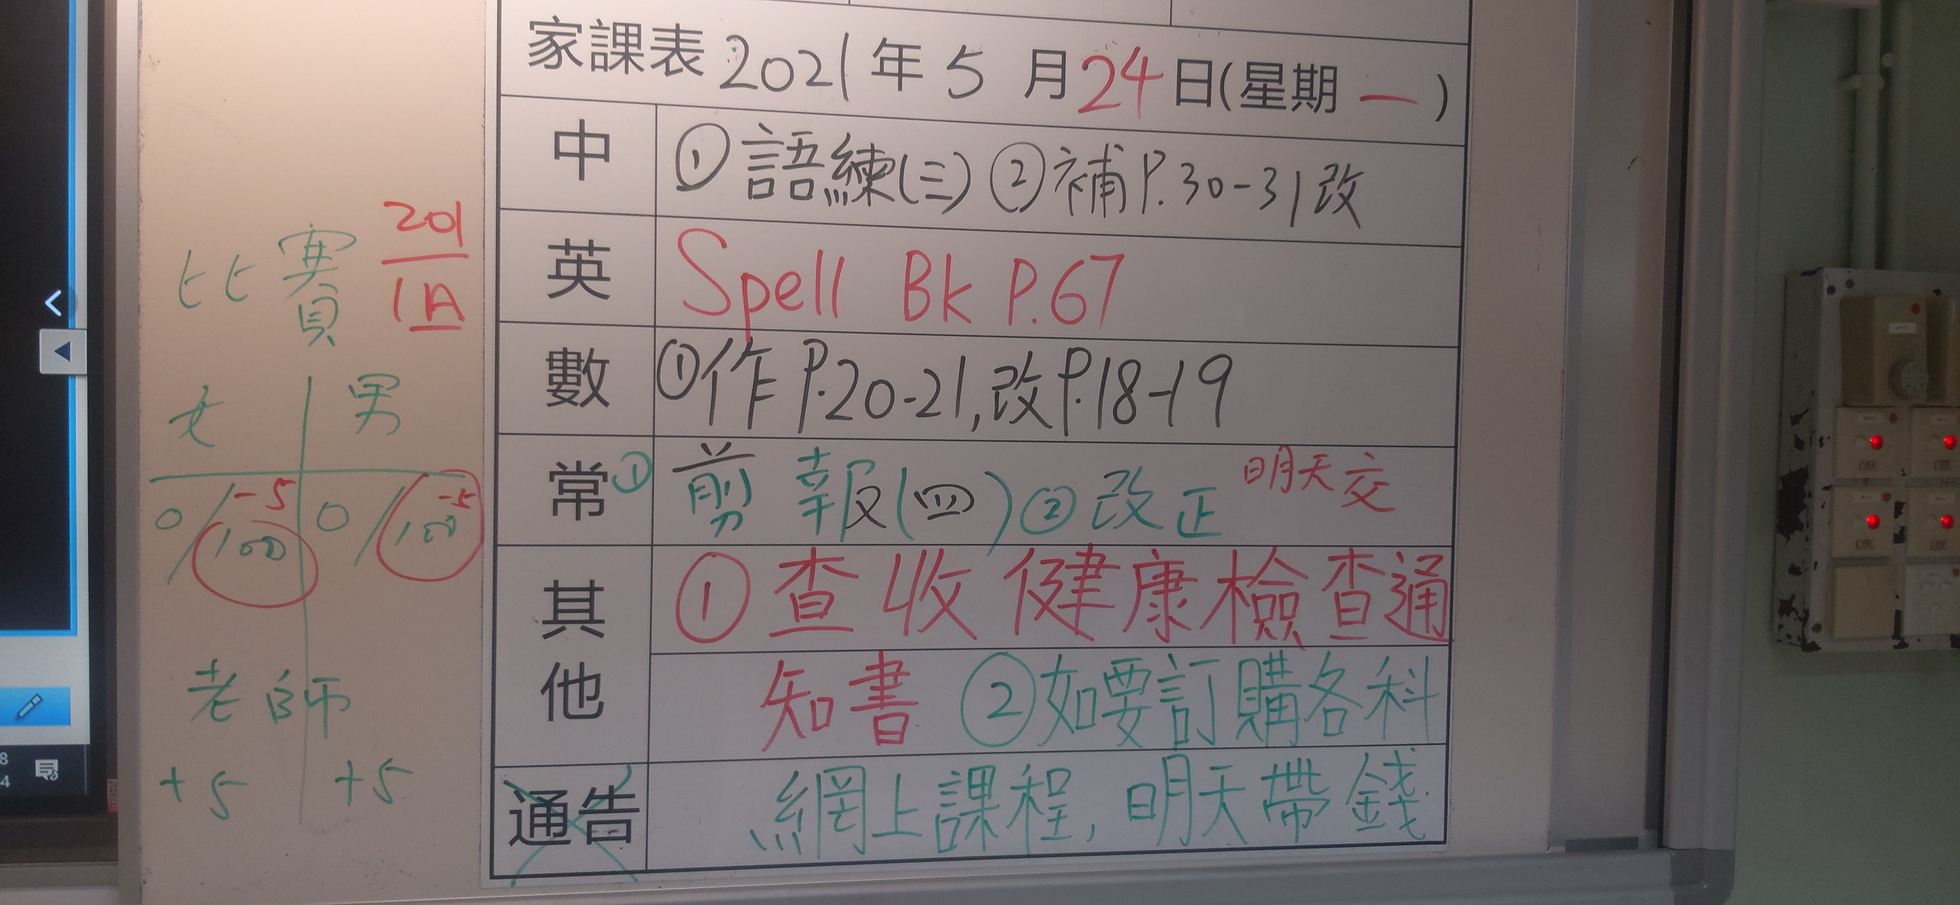 家課表 2021年5月24日(星期一)
中 ①語練(三) ②補P.30-31改
英 Spell Bk P.67
數 ①作P.20-21,改P.18-19
常 ①剪報(四) ②改正 明天交
其他 ①查收健康檢查通
知書 ②如要訂購各科
通告 網上課程,明天帶錢
比賽 201
1A
女 男
0/100 -5 0/100 -5
老師
+5 +5